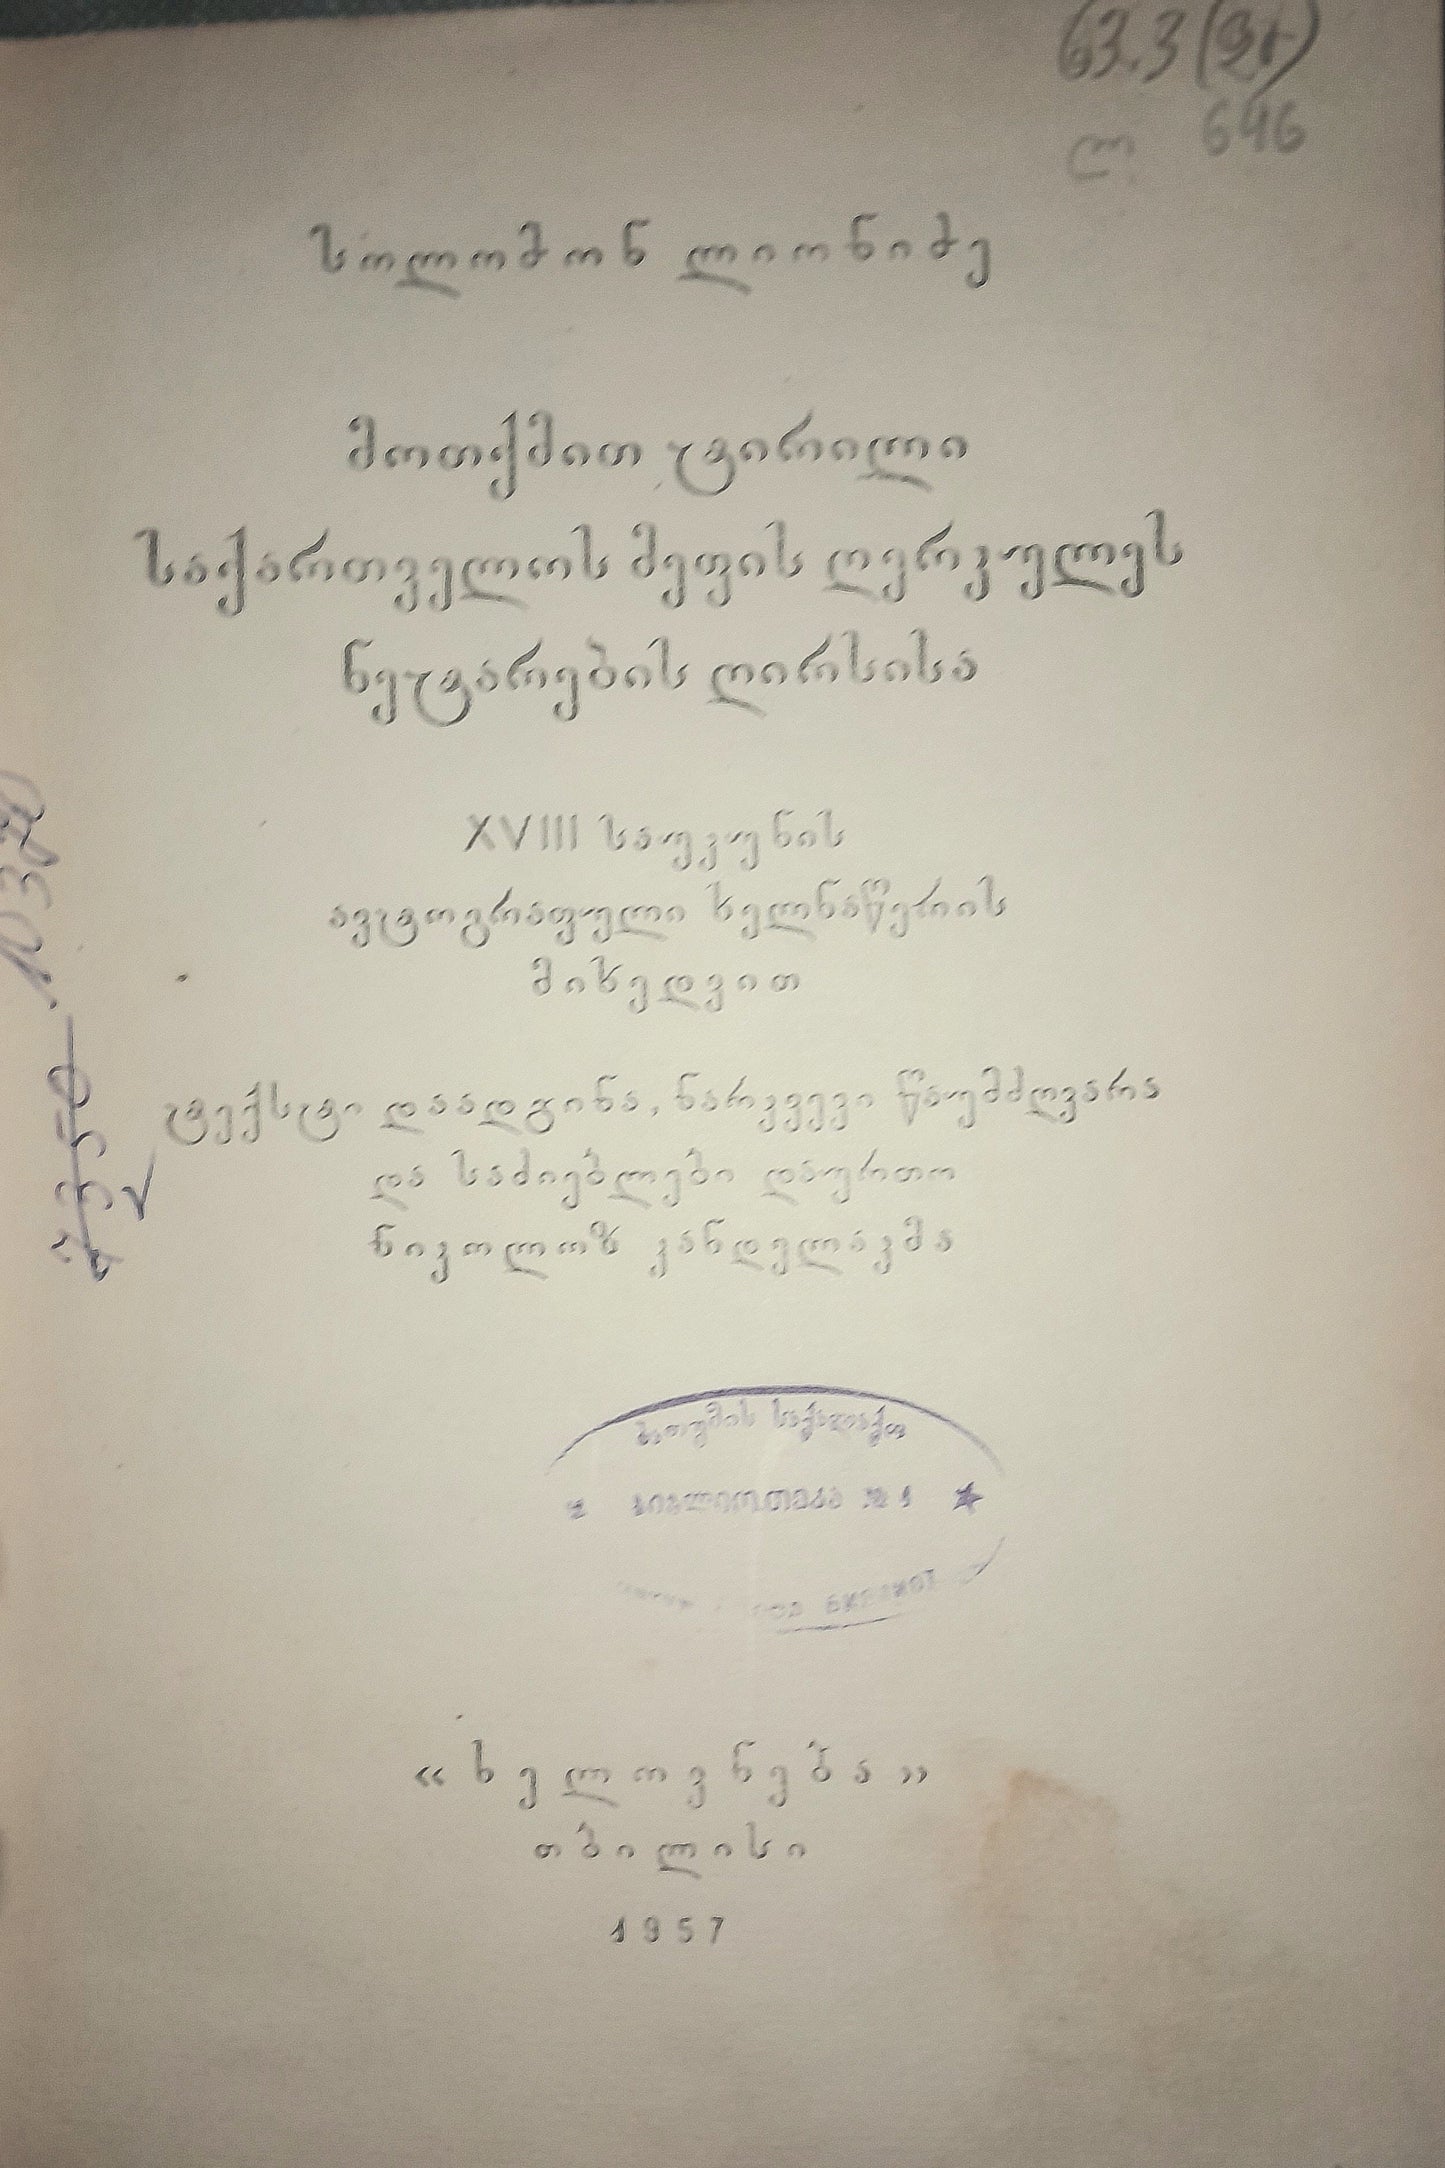 63.3(2გ)
ლ. 646
სოლომონ ლიონიძე
მოთქმით ტირილი
საქართველოს მეფის ღერკულეს
ნეტარების ღირსისა
XVIII საუკუნის
ავტოგრაფული ხელნაწერის
მიხედვით
ტექსტი დაადგინა, ნარკვევი წაუმძღვარა
და საძიებლები დაურთო
ნიკოლოზ კანდელაკმა
ბათუმის საქალაქო
ბიბლიოთეკა № 1
«ხელოვნება»
თბილისი
1957